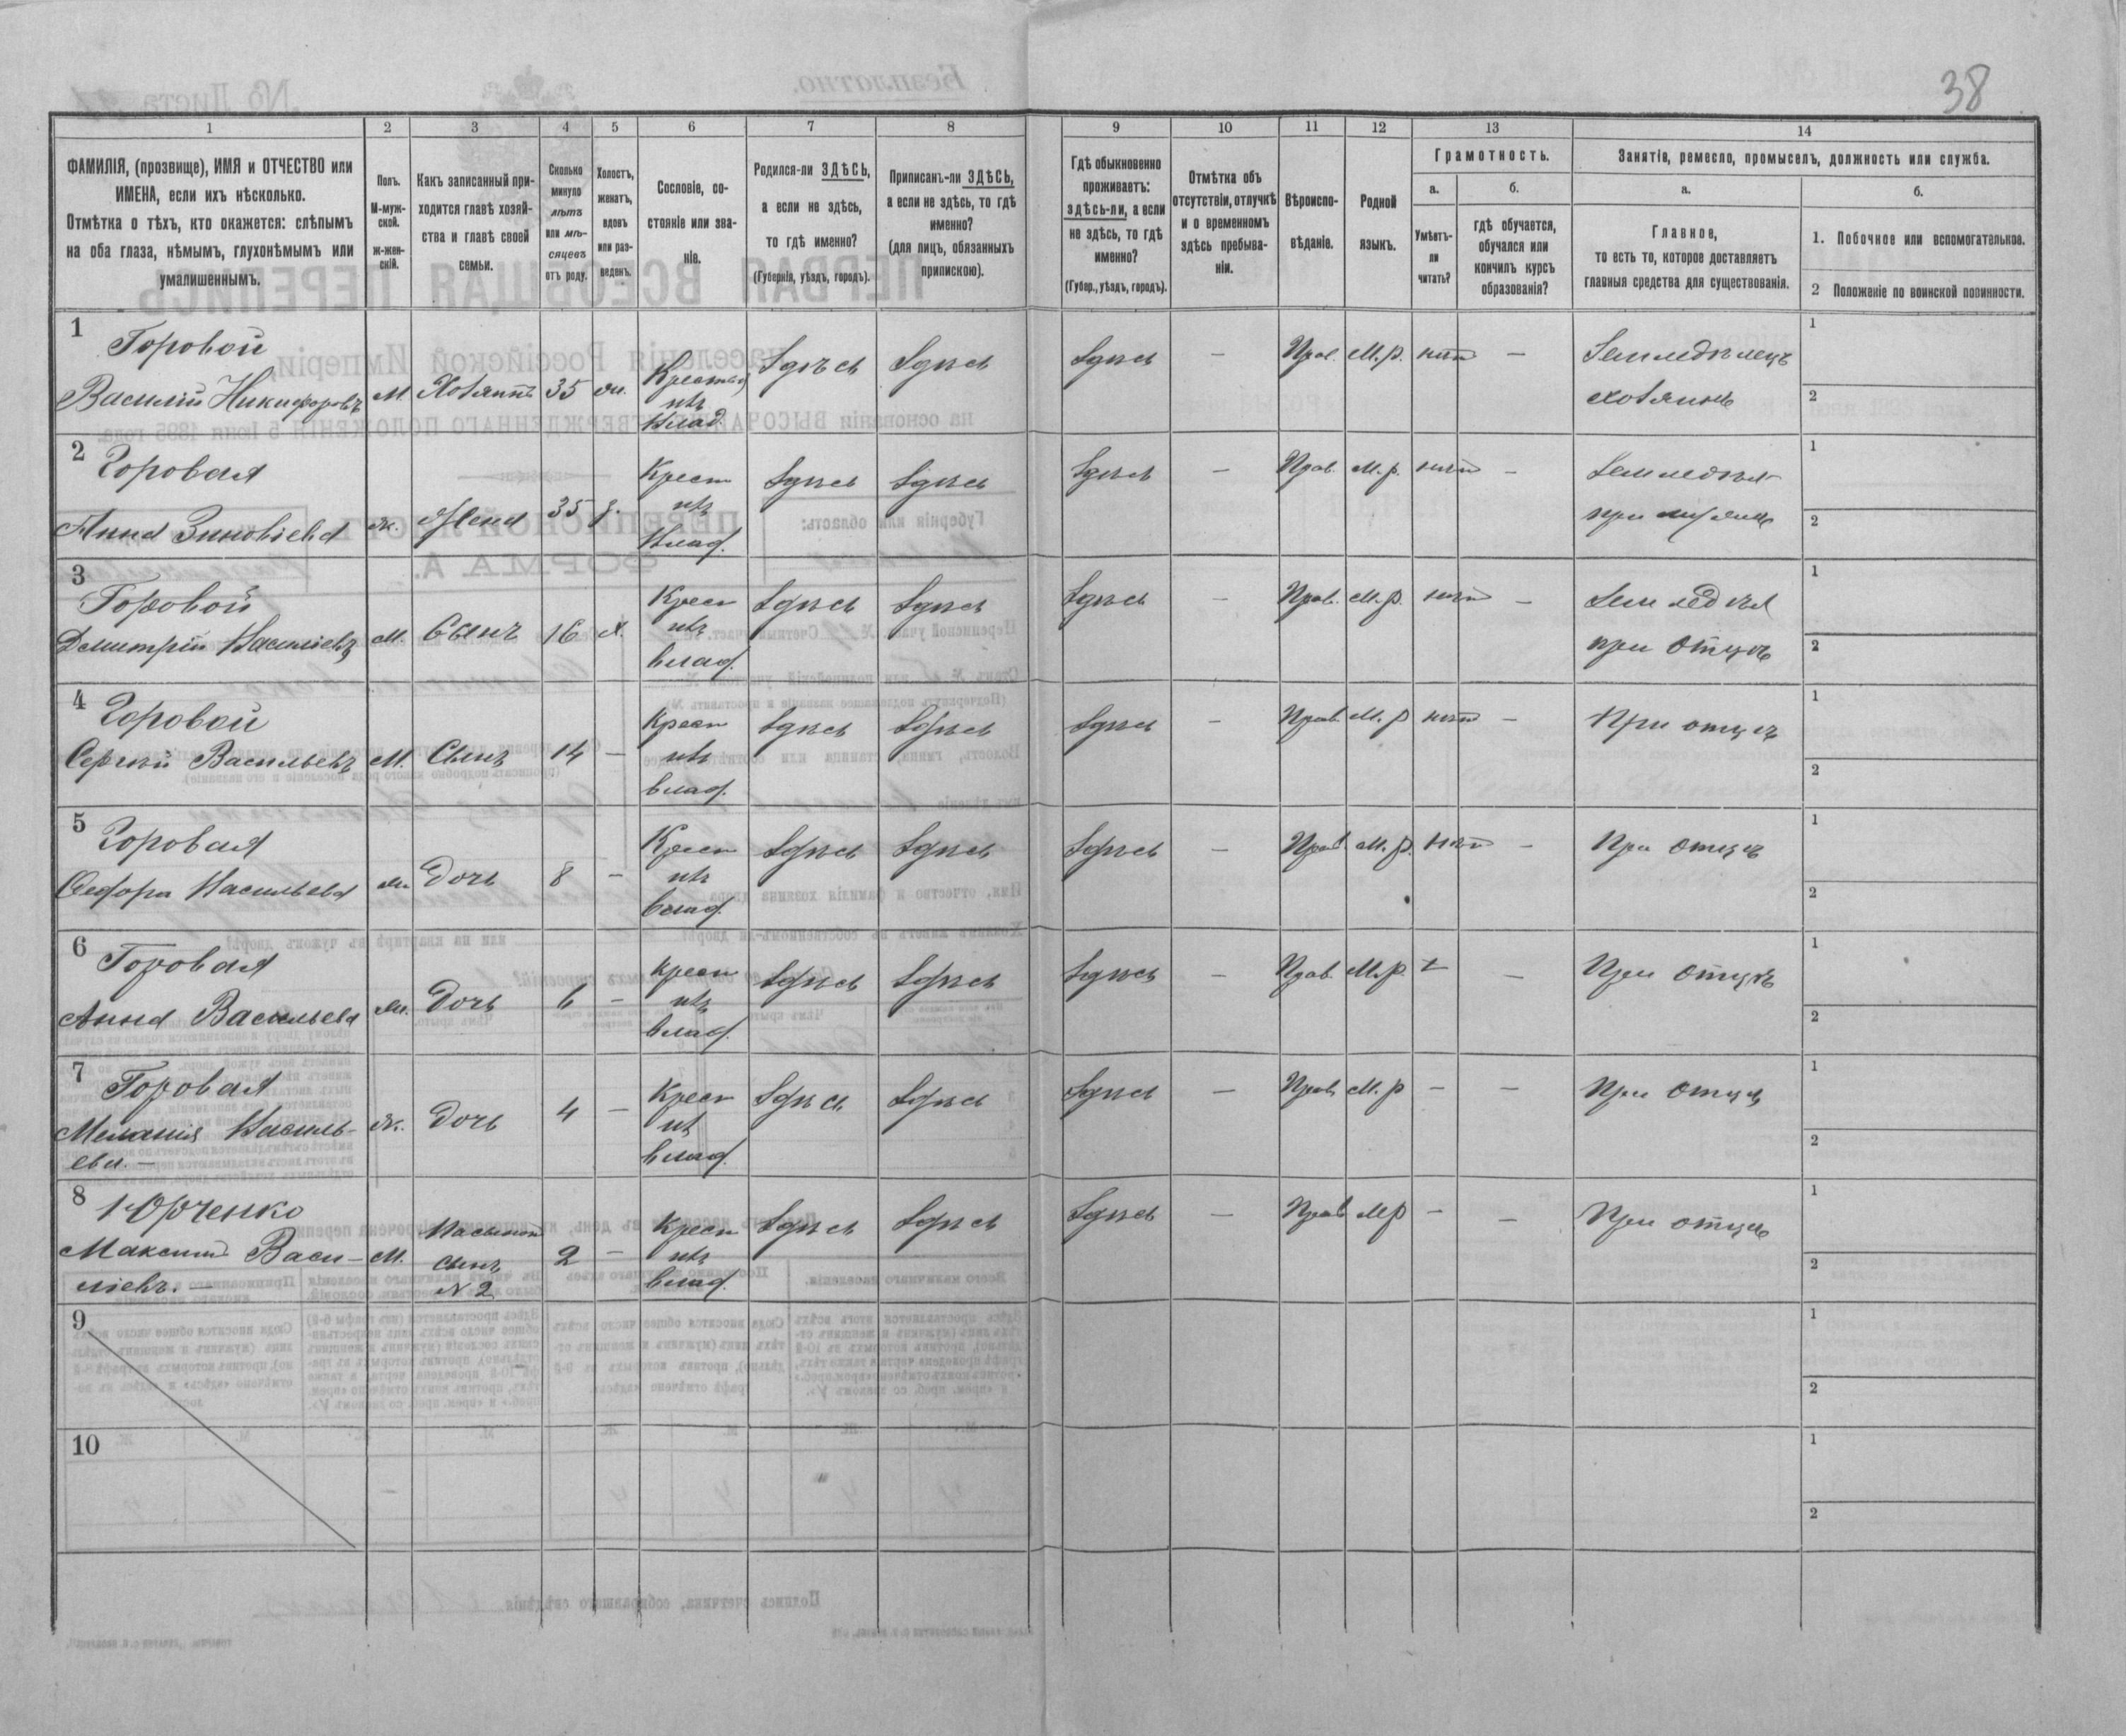 38
1 2 3 4 5 6 7 8 9 10 11 12 13 14
ФАМИЛІЯ, (прозвище), ИМЯ и ОТЧЕСТВО или
ИМЕНА, если ихъ нѣсколько.
Отмѣтка о тѣхъ, кто окажется: слѣпымъ
на оба глаза, нѣмымъ, глухонѣмымъ или
умалишеннымъ.
Полъ.
М-муж-
ской.
ж-жен-
скій.
Какъ записанный при-
ходится главѣ хозяй-
ства и главѣ своей
семьи.
Сколько
минуло
лѣтъ
или мѣ-
сяцевъ
отъ роду.
Холостъ,
женатъ,
вдовъ
или раз-
веденъ.
Сословіе, со-
стояніе или зва-
ніе.
Родился-ли ЗДѢСЬ,
а если не здѣсь,
то гдѣ именно?
(Губернія, уѣздъ, городъ).
Приписанъ-ли ЗДѢСЬ,
а если не здѣсь, то гдѣ
именно?
(для лицъ, обязанныхъ
припискою).
Гдѣ обыкновенно
проживаетъ:
здѣсь-ли, а если
не здѣсь, то гдѣ
именно?
(Губер., уѣздъ, городъ).
Отмѣтка объ
отсутствіи, отлучкѣ
и о временномъ
здѣсь пребыва-
ніи.
Вѣроиспо-
вѣданіе.
Родной
языкъ.
Грамотность.
а.
Умѣетъ-
ли
читать?
б.
гдѣ обучается,
обучался или
кончилъ курсъ
образованія?
Занятіе, ремесло, промыселъ, должность или служба.
а.
Главное,
то есть то, которое доставляетъ
главныя средства для существованія.
б.
1. Побочное или вспомогательное.
2 Положеніе по воинской повинности.
1
Горовой
Василій Никифоровъ
М. Хозяинъ 35 жн.
Крестьян
изъ
влад.
Здѣсь Здѣсь Здѣсь — Прав. М.р. нѣтъ —
Земледѣлецъ
хозяинъ
1
2
2
Горовая
Анна Зиновіева
ж. Жена 35 з.
Крест
изъ
влад.
Здѣсь Здѣсь Здѣсь — Прав. М.р. нѣтъ —
Земледѣл
при мужѣ
1
2
3
Горовой
Дмитрій Васильевъ
М. Сынъ 16 х.
Крест
изъ
влад.
Здѣсь Здѣсь Здѣсь — Прав. М.р. нѣтъ —
Земледѣл
при отцѣ
1
2
4
Горовой
Сергѣй Васильевъ
М. Сынъ 14 —
Крест
изъ
влад.
Здѣсь Здѣсь Здѣсь — Прав. М.р нѣтъ —
При отцѣ
1
2
5
Горовая
Федора Васильева
жн Дочь 8 —
Крест
изъ
влад.
Здѣсь Здѣсь Здѣсь — Прав. М.р. нѣтъ —
При отцѣ
1
2
6
Горовая
Анна Васильева
жн. Дочь 6 —
Крест
изъ
влад.
Здѣсь Здѣсь Здѣсь — Прав. М.р. —
При отцѣ
1
2
7
Горовая
Меланія Василь-
ева. —
ж. Дочь 4 —
Крест
изъ
влад.
Здѣсь Здѣсь Здѣсь — Прав. М.р — —
При отцѣ
1
2
8
Юрченко
Максимъ Васи-
ліевъ. —
М.
Пасынокъ
сынъ
N 2
2 —
Крест
изъ
влад.
Здѣсь Здѣсь Здѣсь — Прав МР — —
При отцѣ
1
2
9
1
2
10
1
2